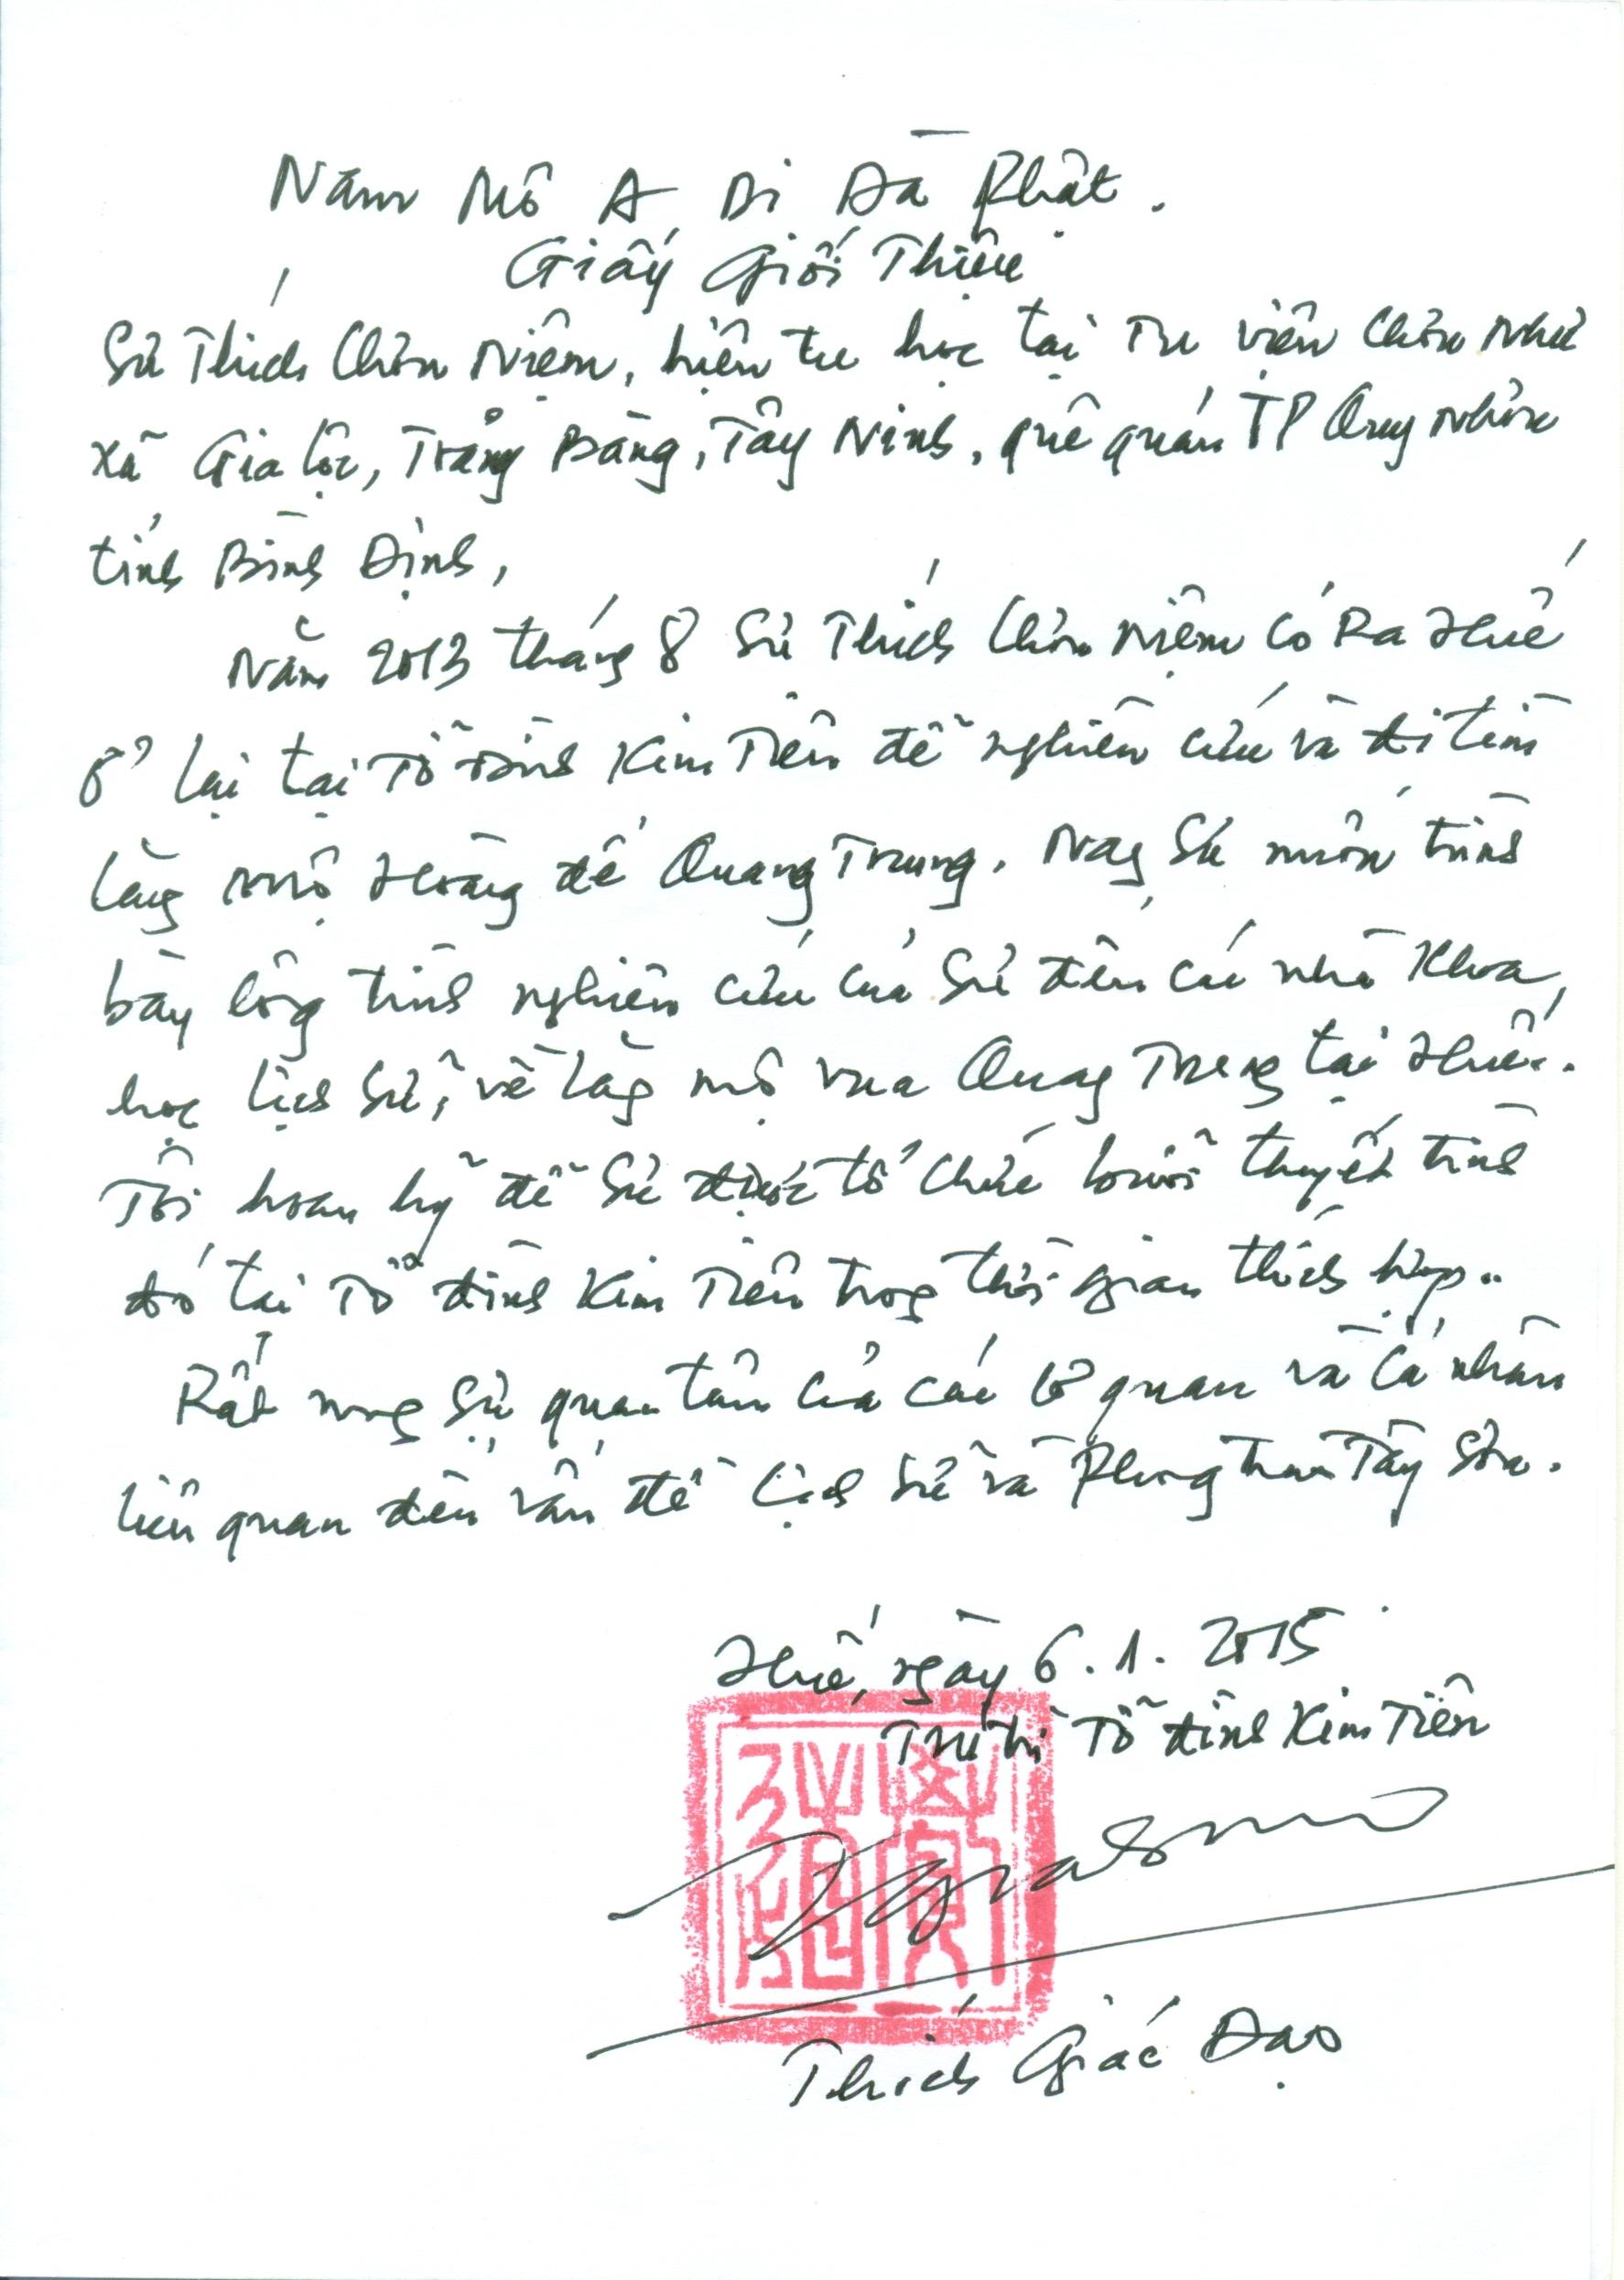 Nam Mô A Di Đà Phật.
Giấy Giới Thiệu
Sư Thích Chơn Niệm, hiện tu học tại Tu viện Chơn Như
xã Gia Lộc, Trảng Bàng, Tây Ninh, quê quán TP Quy Nhơn
tỉnh Bình Định,
Năm 2013 tháng 8 Sư Thích Chơn Niệm có Ra Huế
ở lại tại Tổ Đình Kim Tiên để nghiên cứu và đi tìm
lăng mộ Hoàng đế Quang Trung. Nay Sư muốn trình
bày công trình nghiên cứu của Sư đến các nhà Khoa
học lịch sử, về lăng mộ vua Quang Trung tại Huế.
Tôi hoan hỷ để Sư được tổ chức buổi thuyết trình
đó tại Tổ đình Kim Tiên trong thời gian thích hợp..
Rất mong sự quan tâm của các cơ quan và cá nhân
liên quan đến vấn đề lịch sử và Phong trào Tây Sơn.
Huế, ngày 6.1.2015
Trú trì Tổ đình Kim Tiên
Thích Giác Đạo